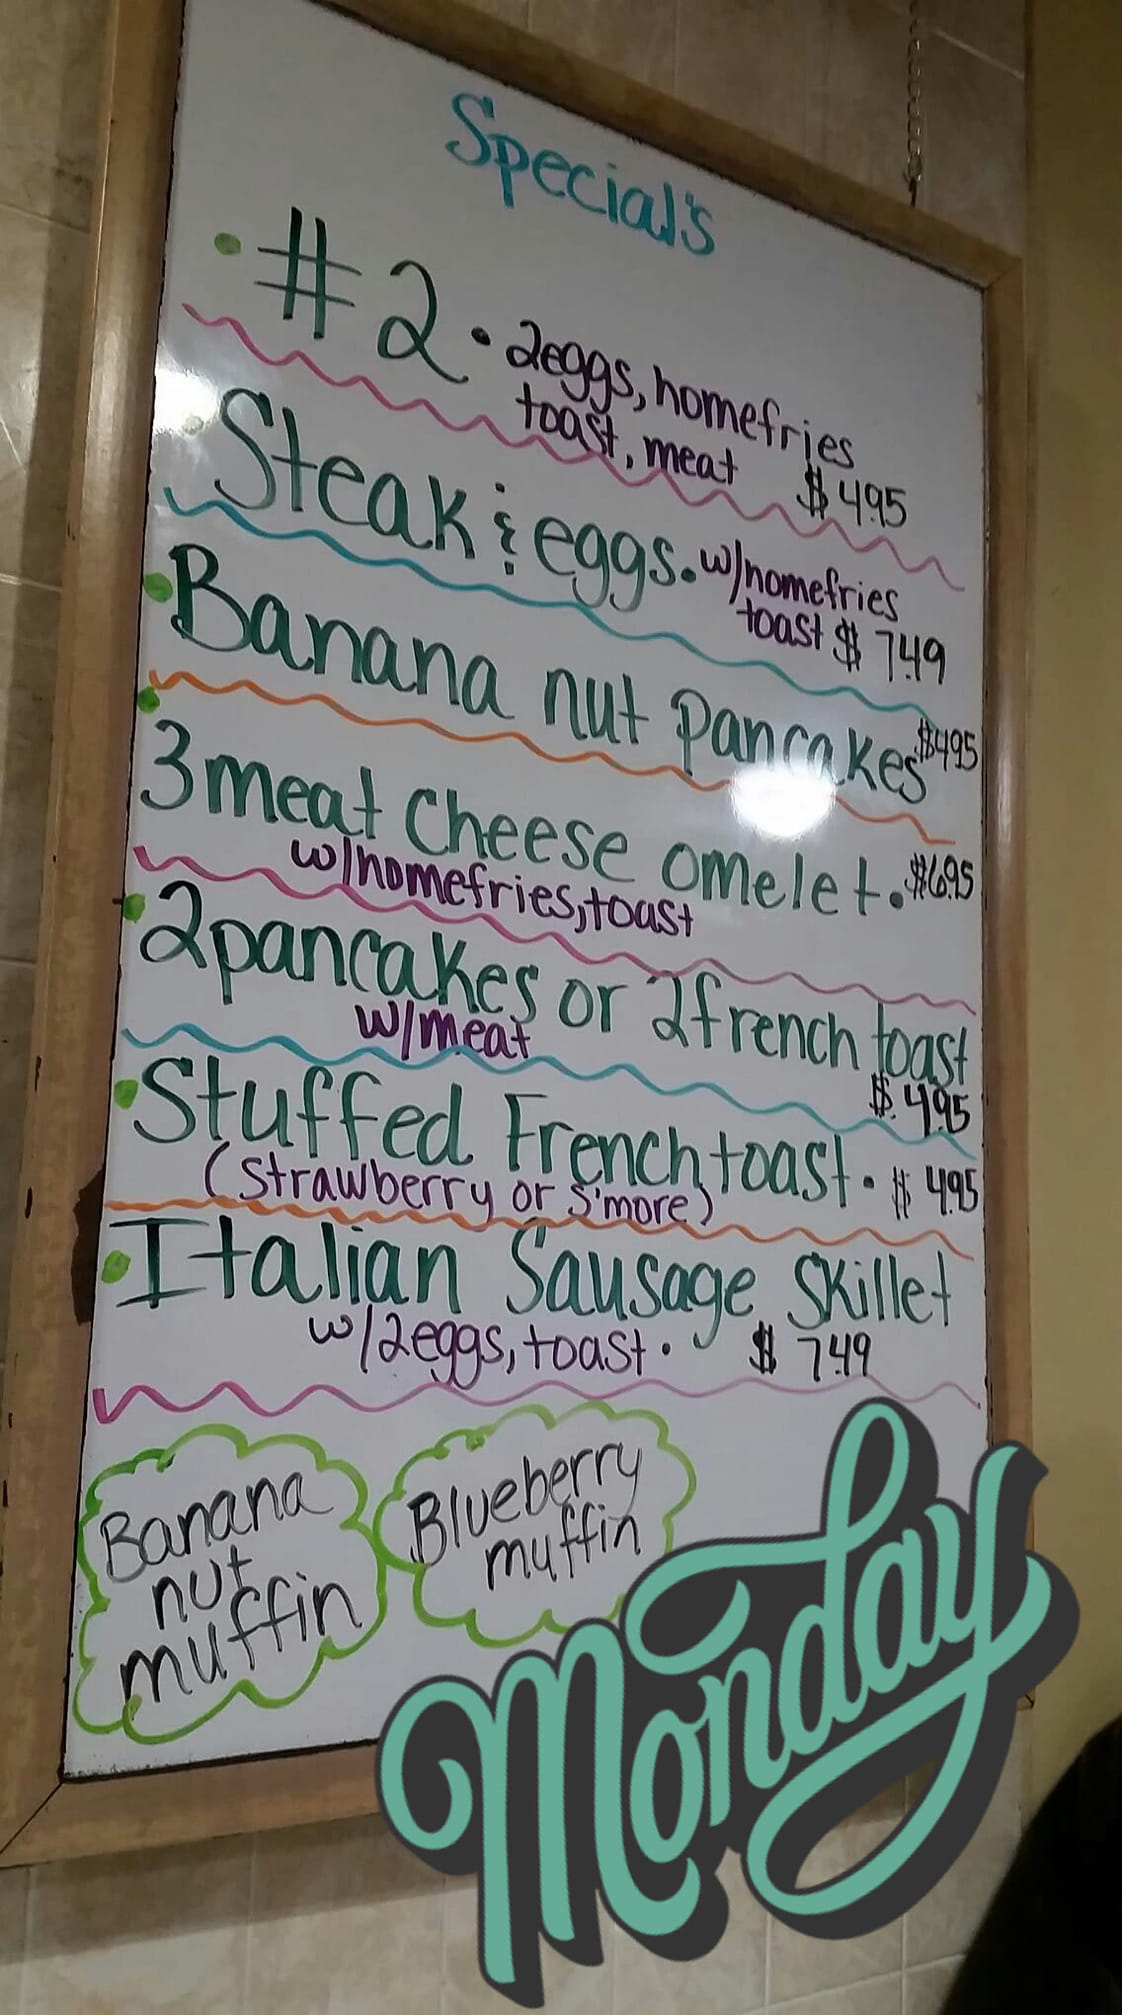 Special's
#2 • 2eggs, homefries
toast, meat $ 4.95
Steak & eggs. w/homefries
toast $ 7.49
Banana nut pancakes $4.95
3meat Cheese omelet. $6.95
w/homefries, toast
2pancakes or 2french toast
w/meat
$ 4.95
Stuffed Frenchtoast. $ 4.95
(strawberry or s'more)
Italian Sausage Skillet
w/2eggs, toast. $ 7.49
Banana
nut
muffin
Blueberry
muffin
Monday